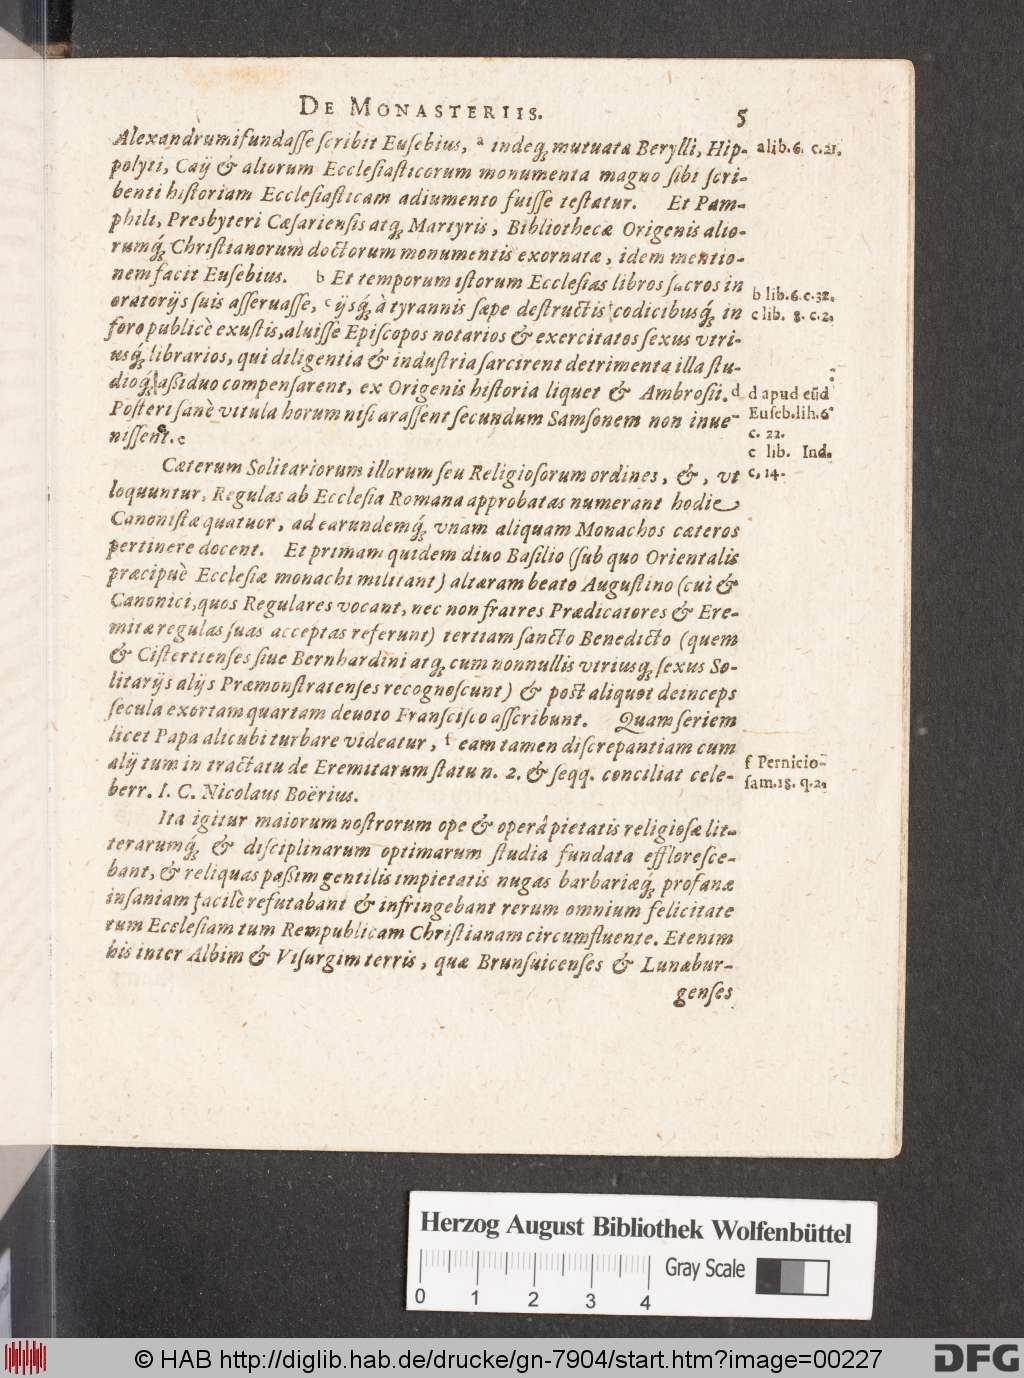 DE MONASTERIIS. 5
Alexandrum ifundasse scribit Eusebius, a indeq; mutuata Berylli, Hip-
polyti, Caij & aliorum Ecclesiasticorum monumenta magno sibi scri-
benti historiam Ecclesiasticam adiumento fuisse testatur. Et Pam-
phili, Presbyteri Cæsariensis atq; Martyris, Bibliothecæ Origenis alio-
rumq́; Christianorum doctorum monumentis exornatæ, idem mentio-
nem facit Eusebius. b Et temporum istorum Ecclesias libros sacros in
oratorijs suis asseruasse, c ijsq́; à tyrannis sæpe destructis codicibusq́; in
foro publicè exustis, aluisse Episcopos notarios & exercitatos sexus vtri-
usq́; librarios, qui diligentia & industria sarcirent detrimenta illa stu-
dioq́; assiduo compensarent, ex Origenis historia liquet & Ambrosii. d
Posteri sanè vitula horum nisi arassent secundum Samsonem non inue-
nissent. e
a lib. 6. c. 21.
b lib. 6. c. 32.
c lib. 8. c. 2.
d apud eũd
Euseb. lib. 6
c. 22.
e lib. Iud.
c. 14.
Cæterum Solitariorum illorum seu Religiosorum ordines, &, vt
loquuntur, Regulas ab Ecclesia Romana approbatas numerant hodie
Canonistæ quatuor, ad earundemq́; vnam aliquam Monachos cæteros
pertinere docent. Et primam quidem diuo Basilio (sub quo Orientalis
præcipuè Ecclesiæ monachi militant) alteram beato Augustino (cui &
Canonici, quos Regulares vocant, nec non fratres Prædicatores & Ere-
mitæ regulas suas acceptas referunt) tertiam sancto Benedicto (quem
& Cistertienses siue Bernhardini atq; cum nonnullis vtriusq; sexus So-
litarijs alijs Præmonstratenses recognoscunt) & post aliquot deinceps
secula exortam quartam deuoto Francisco asscribunt. Quam seriem
licet Papa alicubi turbare videatur, f eam tamen discrepantiam cum
alij tum in tractatu de Eremitarum statu n. 2. & seqq. conciliat cele-
berr. I. C. Nicolaus Boërius.
f Pernicio-
sam. 18. q. 2.
Ita igitur maiorum nostrorum ope & operâ pietatis religiosæ lit-
terarumq́; & disciplinarum optimarum studia fundata effloresce-
bant, & reliquas passim gentilis impietatis nugas barbariæq́; profanæ
insaniam facilè refutabant & infringebant rerum omnium felicitate
tum Ecclesiam tum Rempublicam Christianam circumfluente. Etenim
his inter Albim & Visurgim terris, quæ Brunsuicenses & Lunæbur-
genses
Herzog August Bibliothek Wolfenbüttel
0 1 2 3 4
Gray Scale
© HAB http://diglib.hab.de/drucke/gn-7904/start.htm?image=00227
DFG